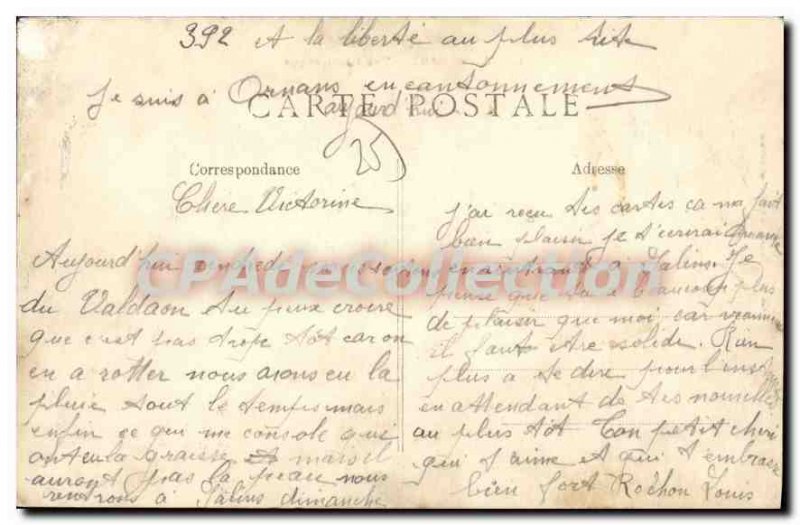 392 et la liberté au plus vite
Je suis à Ornans en cantonnement
CARTE POSTALE
aujourd'hui
25
Correspondance
Adresse
Chère Victorine
Aujourd'hui vendredi nous
du Valdaon tu peux croire
que c'est pas trope tôt car on
en a rotter nous avons eu la
pluie tout le temps mais
enfin ce que me console qui
ont eu la graisse et mais il
auront pas la peau nous
rentrons à Salins dimanche
J'ai reçu tes cartes ça ma fait
bien plaisir je t'ecrirai quand
en rentrant à Salins. Je
pense que tu a beaucoup plus
de plaisir que moi car vraiment
il faut être solide. Rien
plus a te dire pour l'inst
en attendant de tes nouvelles
au plus tôt Ton petit cheri
qui t'aime et qui t'embrasse
bien fort Rochon Louis
CPADeCollection